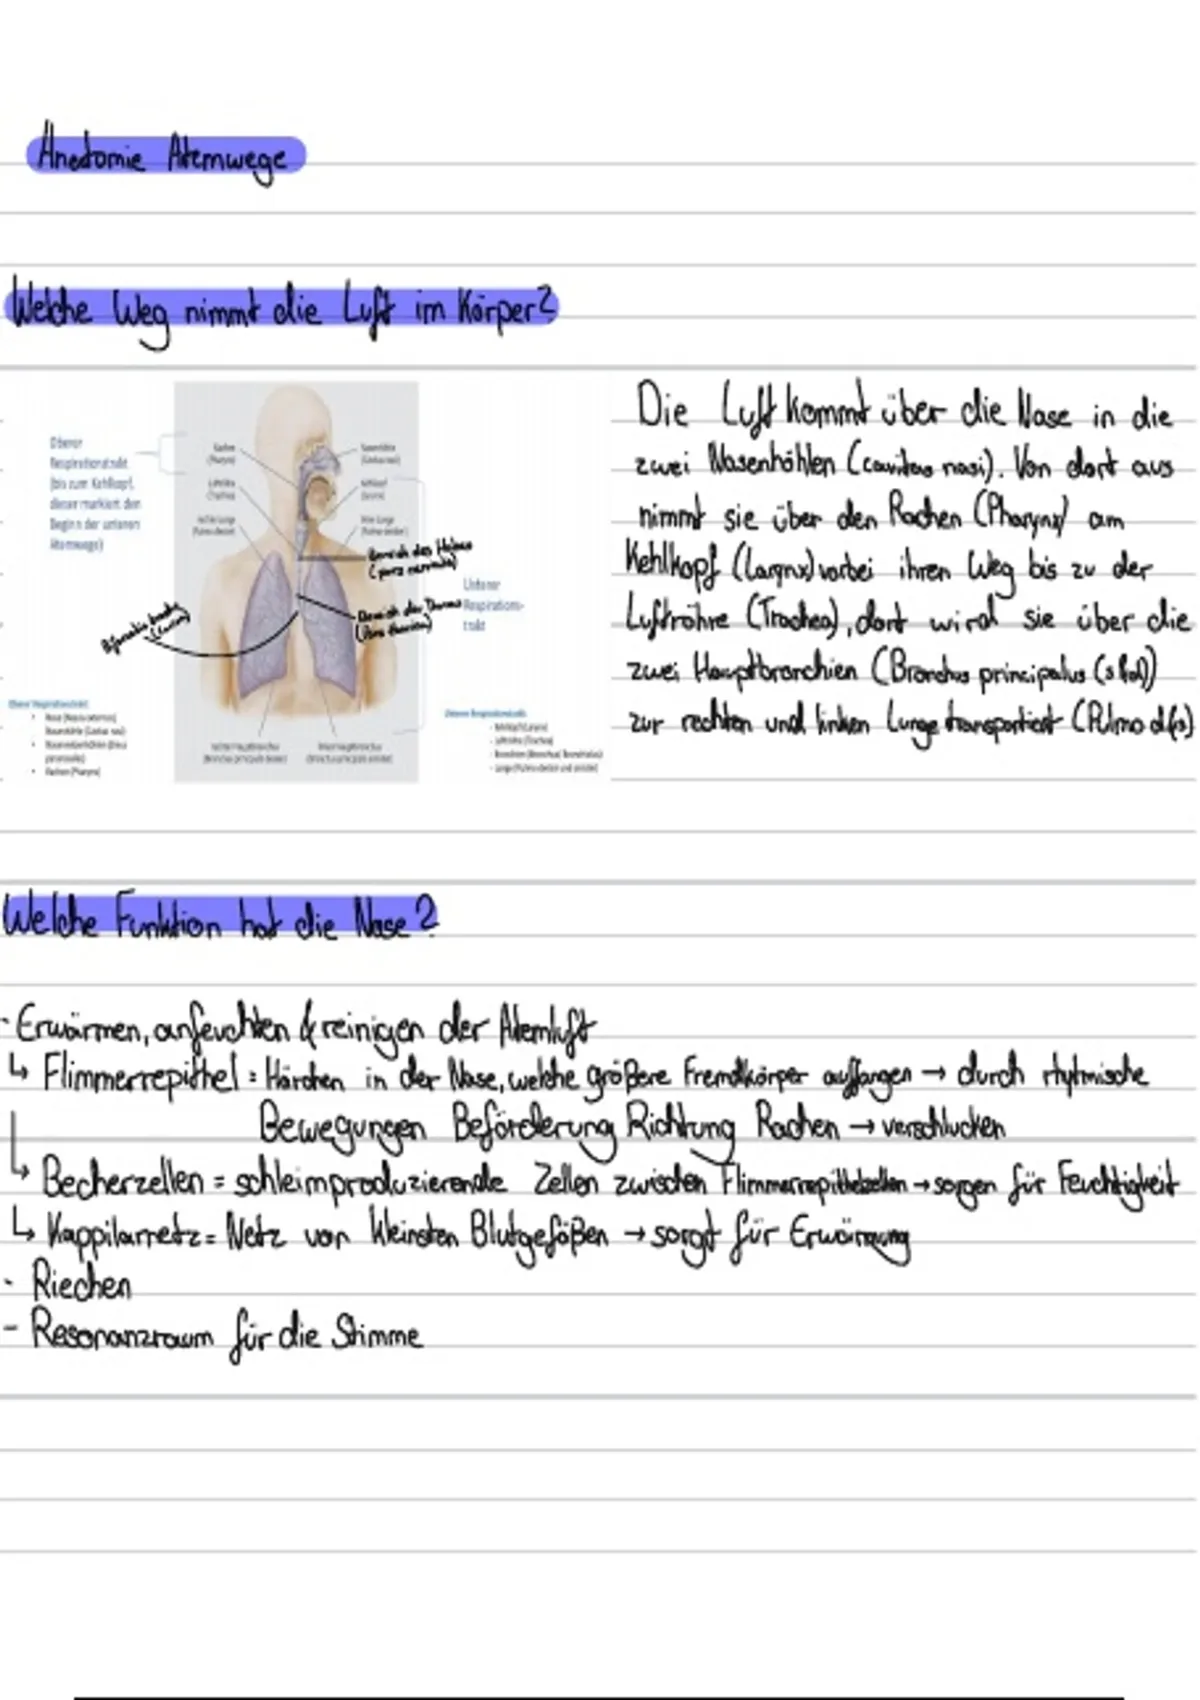 Anatomie Atemwege
Welche Weg nimmt die Luft im Körper?
Oberer
Respirationstrakt
(bis zum Kehlkopf,
dieser markiert den
Beginn der unteren
Atemwege)
Rachen
(Pharynx)
Luftröhre
(Trachea)
rechte Lunge
(Pulmo dexter)
Nasenhöhle
(Cavitas nasi)
Kehlkopf
(Larynx)
linke Lunge
(Pulmo sinister)
Bereich des Halses
Bereich des Thorax
Unterer
Respirations-
trakt
rechter Hauptbronchus
(Bronchus principalis dexter)
linker Hauptbronchus
(Bronchus principalis sinister)
Oberer Respirationstrakt:
Nase (Nasus externus)
Nasenhöhle (Cavitas nasi)
Nasennebenhöhlen (Sinus
paranasales)
Rachen (Pharynx)
Unterer Respirationstrakt:
- Kehlkopf (Larynx)
- Luftröhre (Trachea)
- Bronchien (Bronchus/ Bronchiolus)
- Lunge (Pulmo dexter und sinister)
Die Luft kommt über die Nase in die
zwei Nasenhöhlen (cavitas nasi). Von dort aus
nimmt sie über den Rachen (Pharynx) am
Kehlkopf (Larynx) vorbei ihren Weg bis zu der
Luftröhre (Trachea), dort wird sie über die
zwei Hauptbronchien (Bronchus principalus (s&d))
zur rechten und linken Lunge transportiert (Pulmo d&s)
Welche Funktion hat die Nase?
- Erwärmen, anfeuchten & reinigen der Atemluft
↳ Flimmerrepithel = Härchen in der Nase, welche größere Fremdkörper auffangen → durch rhytmische
Bewegungen Beförderung Richtung Rachen → verschlucken
↳ Becherzellen = schleimproduzierende Zellen zwischen Flimmerrepithelzellen → sorgen für Feuchtigkeit
↳ Kappilarnetz = Netz von kleinsten Blutgefäßen → sorgt für Erwärmung
- Riechen
- Resonanzraum für die Stimme